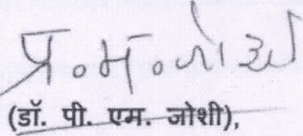 प्र.मं.जोशी
(डॉ. पी. एम. जोशी),